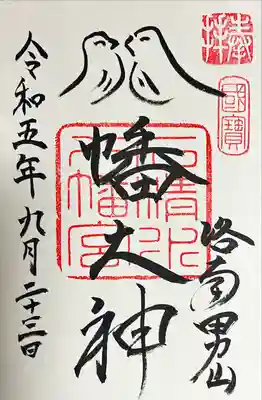 奉拝
國寶
洛南男山
八幡大神
石清水八幡宮
令和五年九月二十三日